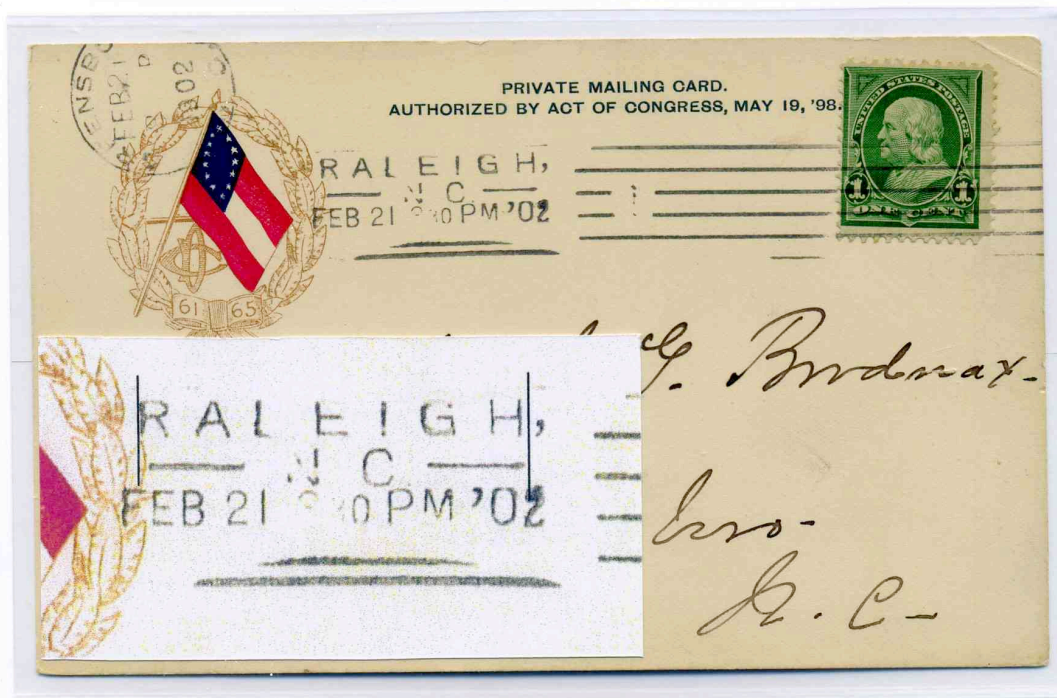 ENSBO
FEB 21
P
02
PRIVATE MAILING CARD.
AUTHORIZED BY ACT OF CONGRESS, MAY 19, '98.
UNITED STATES POSTAGE
1 1
ONE CENT
RALEIGH,
N. C.
FEB 21 30 PM '02
61 65
G. Brodnax-
RALEIGH,
N C
FEB 21 30 PM '02
Boro-
N. C-